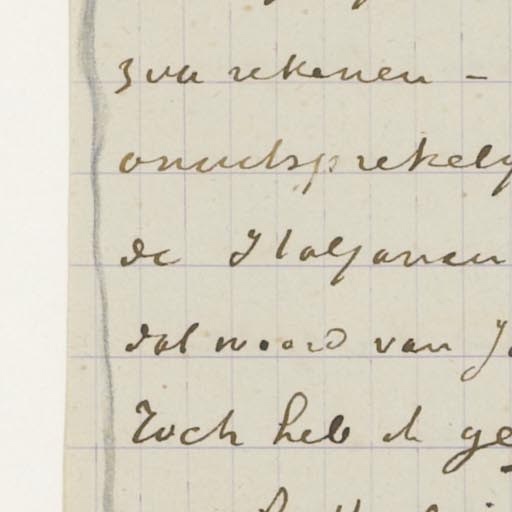 zou rekenen –
onuitsprekely
de Italjanen
dat woord van J
Toch heb ik ge